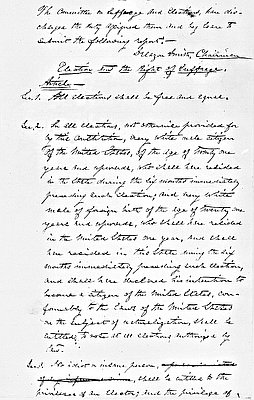 The Committee on Suffrage and Elections, have dis-
charged the duty assigned them and beg leave to
submit the following report,—
Delazon Smith, Chairman
Election and the Right of Suffrage
Article —
Sec. 1. All elections shall be free and equal.
Sec. 2. In all elections, not otherwise provided for
by this Constitution, every white male citizen
of the United States, of the age of twenty one
years and upwards, who shall have resided
in the State during the six months immediately
preceding such election; And every white
male of foreign birth of the age of twenty one
years and upwards, who shall have resided
in the United States one year, and shall
have resided in this State during the six
months immediately preceding such election,
and shall have declared his intention to
become a citizen of the United States, con-
formably to the Laws of the United States
on the subject of naturalization, shall be
entitled to vote at all elections authorized by
law.
Sec. 3. No idiot or insane person,
shall be entitled to the
privileges of an Elector; And the privilege of